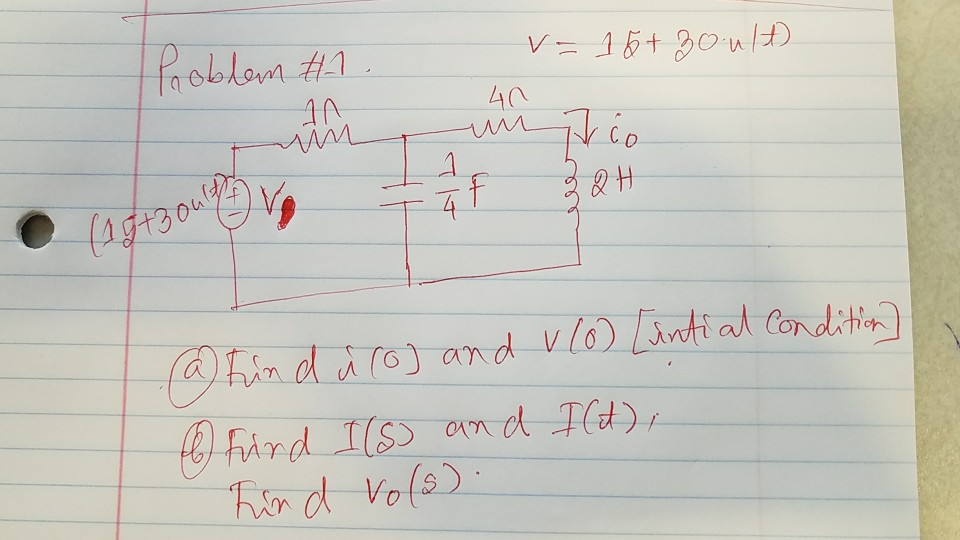 V = 15 + 30.u(t)
Problem #1.
1Ω
4Ω
io
(15+30u(t))
+
-
V
1/4 F
2H
(a) Find i(0) and v(0) [intial Condition]
(b) Find I(s) and I(t),
Find Vo(s).